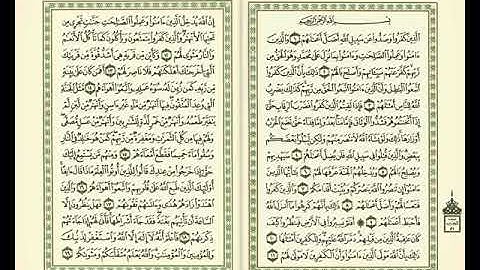 بسم الله الرحمن الرحيم
الذين كفروا وصدوا عن سبيل الله أضل أعملهم ١ والذين
ءامنوا وعملوا الصلحت وءامنوا بما نزل على محمد وهو الحق من
ربهم كفر عنهم سيئاتهم وأصلح بالهم ٢ ذلك بأن الذين كفروا
اتبعوا البطل وأن الذين ءامنوا اتبعوا الحق من ربهم كذلك يضرب
الله للناس أمثلهم ٣ فإذا لقيتم الذين كفروا فضرب الرقاب حتى
إذا أثخنتموهم فشدوا الوثاق فإما منا بعد وإما فداء حتى تضع الحرب
أوزارها ذلك ولو يشاء الله لانتصر منهم ولكن ليبلوا بعضكم
ببعض والذين قتلوا في سبيل الله فلن يضل أعملهم ٤ سيهديهم
ويصلح بالهم ٥ ويدخلهم الجنة عرفها لهم ٦ يأيها الذين
ءامنوا إن تنصروا الله ينصركم ويثبت أقدامكم ٧ والذين كفروا
فتعسا لهم وأضل أعملهم ٨ ذلك بأنهم كرهوا ما أنزل الله
فأحبط أعملهم ٩ أفلم يسيروا في الأرض فينظروا كيف
كان عقبة الذين من قبلهم دمر الله عليهم وللكفرين أمثلها ١٠
ذلك بأن الله مولى الذين ءامنوا وأن الكفرين لا مولى لهم ١١
إن الله يدخل الذين ءامنوا وعملوا الصلحت جنت تجري من
تحتها الأنهر والذين كفروا يتمتعون ويأكلون كما تأكل الأنعم
والنار مثوى لهم ١٢ وكأين من قرية هي أشد قوة من قريتك
التي أخرجتك أهلكنهم فلا ناصر لهم ١٣ أفمن كان على بينة
من ربه كمن زين له سوء عمله واتبعوا أهواءهم ١٤ مثل الجنة
التي وعد المتقون فيها أنهر من ماء غير ءاسن وأنهر من لبن لم يتغير
طعمه وأنهر من خمر لذة للشربين وأنهر من عسل مصفى
ولهم فيها من كل الثمرت ومغفرة من ربهم كمن هو خلد في النار
وسقوا ماء حميما فقطع أمعاءهم ١٥ ومنهم من يستمع إليك
حتى إذا خرجوا من عندك قالوا للذين أوتوا العلم ماذا قال ءانفا
أولئك الذين طبع الله على قلوبهم واتبعوا أهواءهم ١٦ والذين
اهتدوا زادهم هدى وءاتىهم تقوىهم ١٧ فهل ينظرون إلا
الساعة أن تأتيهم بغتة فقد جاء أشراطها فأنى لهم إذا جاءتهم
ذكرىهم ١٨ فاعلم أنه لا إله إلا الله واستغفر لذنبك
وللمؤمنين والمؤمنت والله يعلم متقلبكم ومثوىكم ١٩